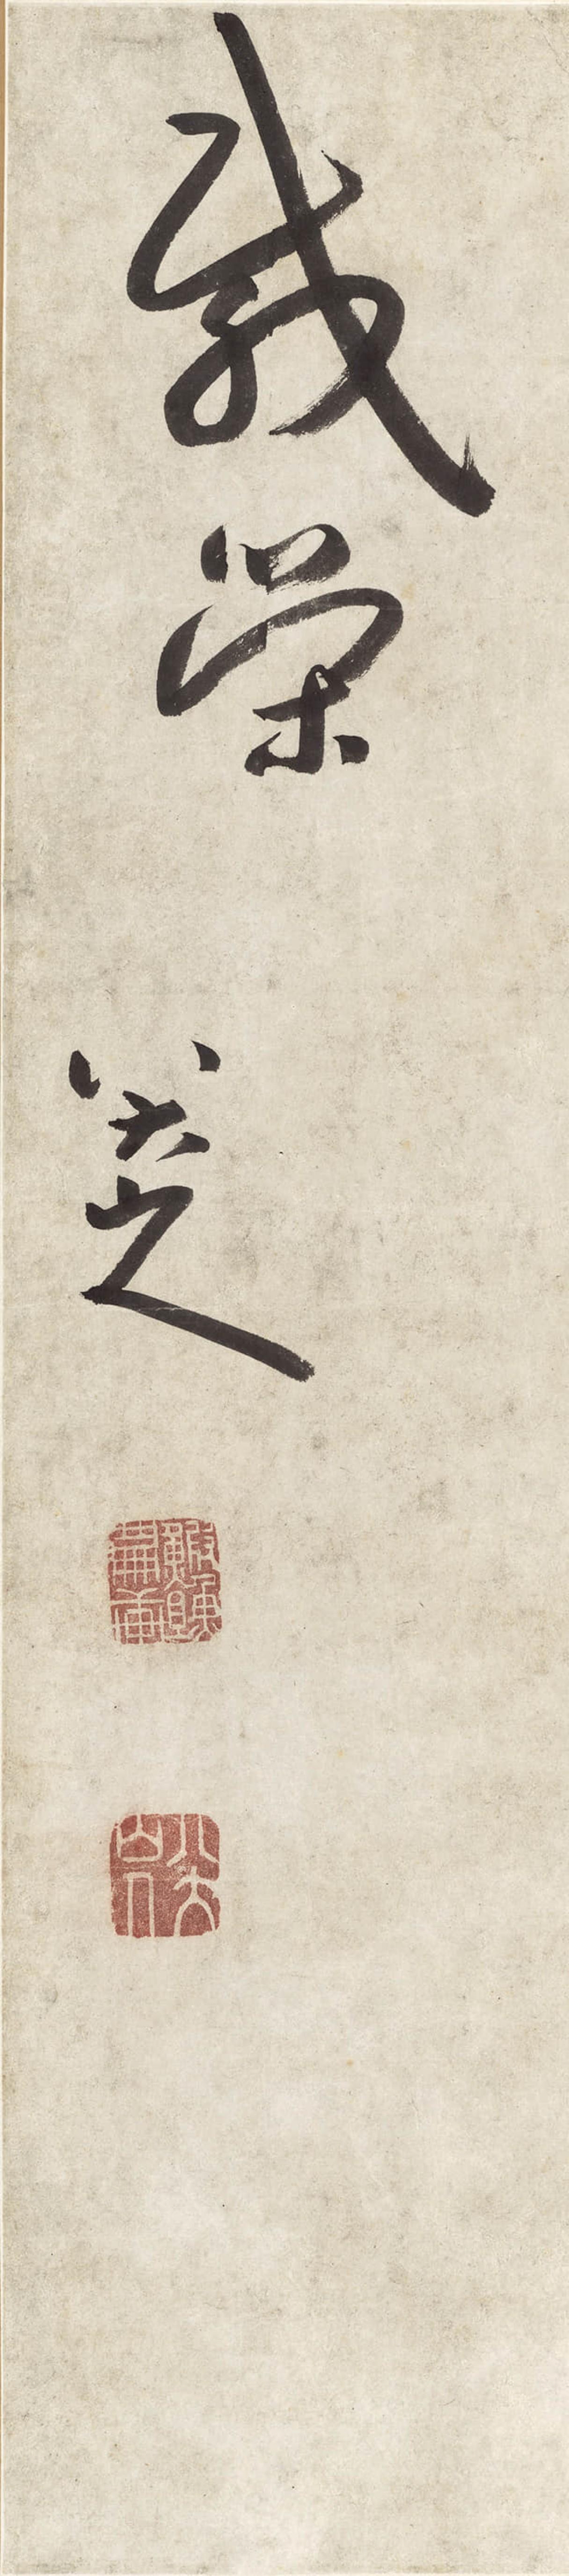 載榮
八大山人
八大山人